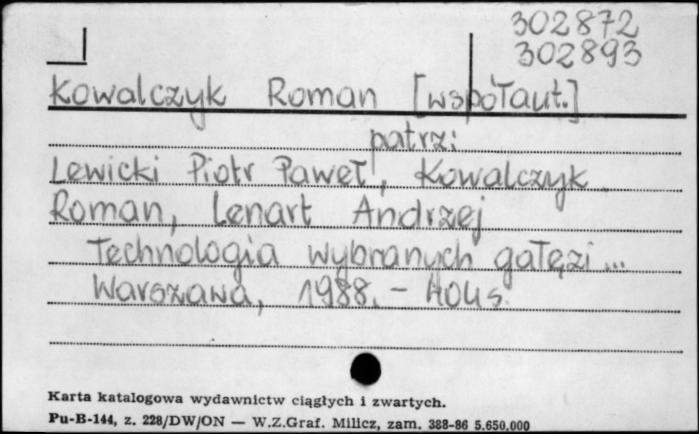 302872
302893
Kowalczyk Roman [współaut.]
patrz:
Lewicki Piotr Paweł, Kowalczyk
Roman, Lenart Andrzej
Technologia wybranych gałęzi...
Warszawa, 1988. -
Karta katalogowa wydawnictw ciągłych i zwartych.
Pu-B-144, z. 228/DW/ON — W.Z.Graf. Milicz, zam. 388-86 5.650.000